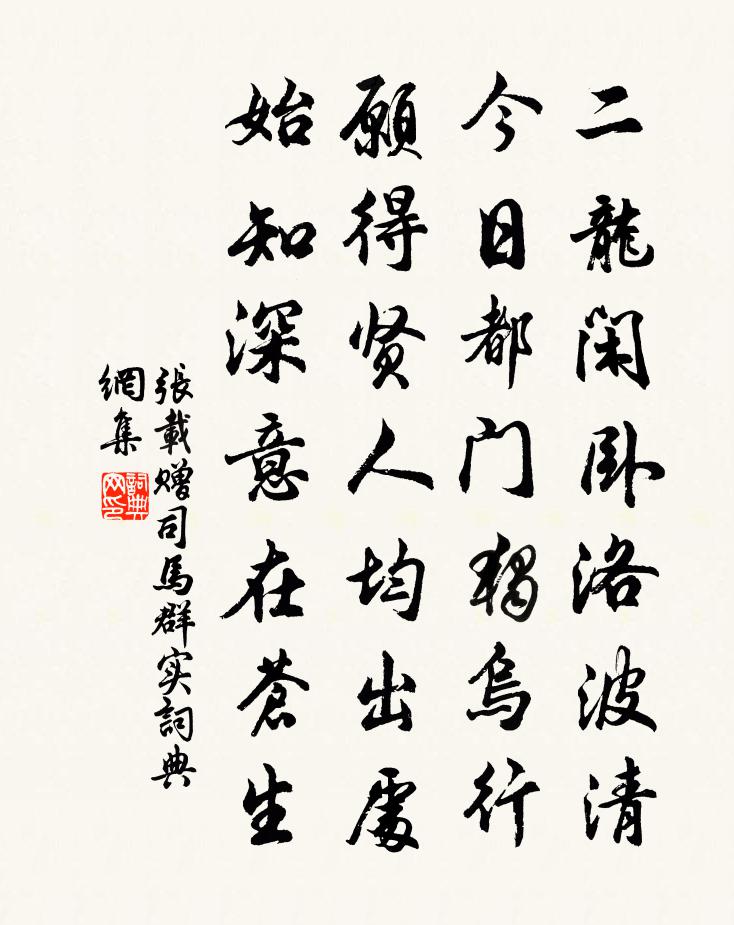 二龍闲卧洛波清
今日都门獨烏行
願得贤人均出處
始知深意在蒼生
張載赠司馬群实詞典
網集
詞典
网印